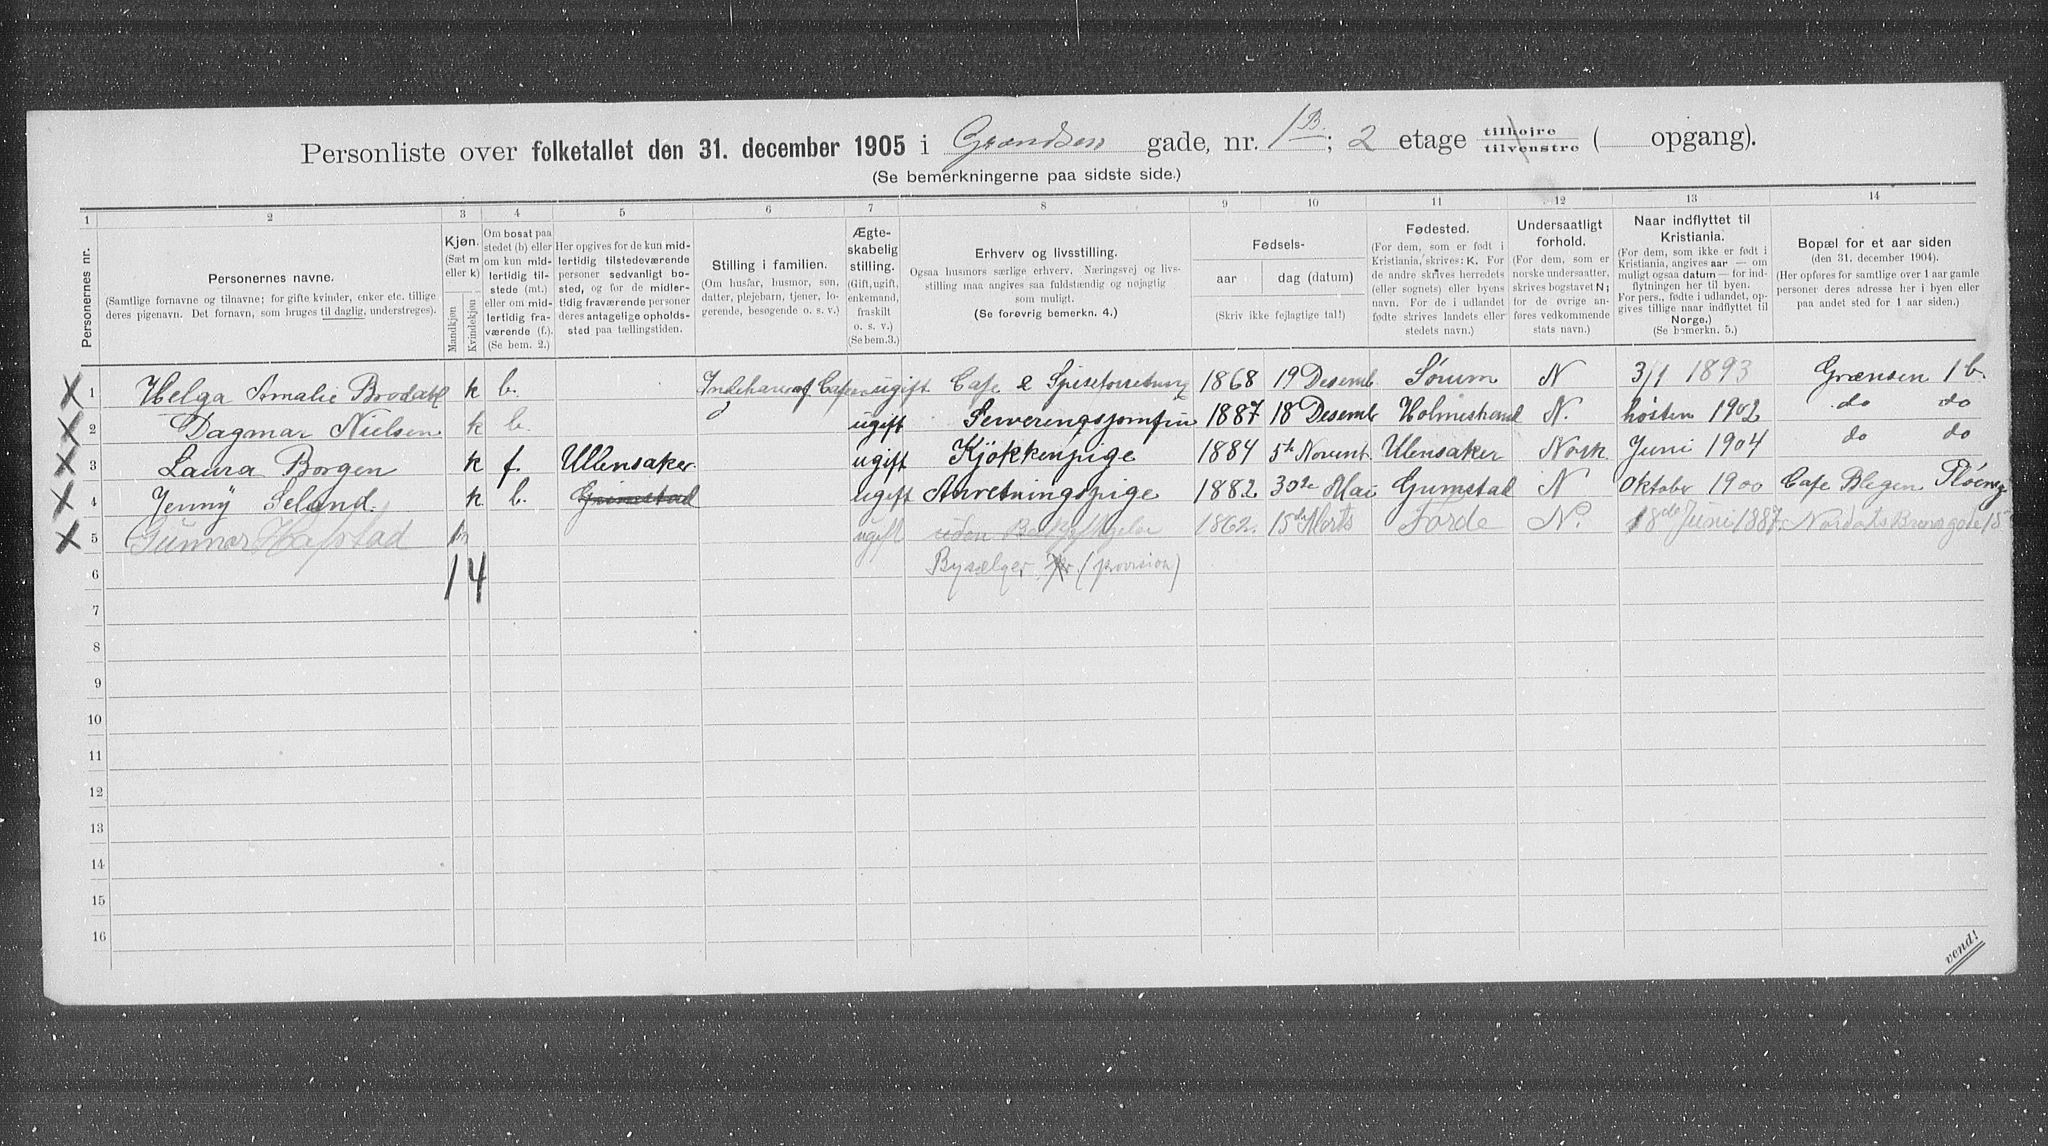 Personliste over folketallet den 31. december 1905 i Grændsen gade, nr. 1B; 2 etage tilhøjre tilvenstre ( opgang).
(Se bemerkningerne paa sidste side.)
1 2 3 4 5 6 7 8 9 10 11 12 13 14
Personernes nr.
Personernes navne.
(Samtlige fornavne og tilnavne; for gifte kvinder, enker etc. tillige
deres pigenavn. Det fornavn, som bruges til daglig, understreges).
Kjøn.
(Sæt m
eller k)
Mandkjøn
Kvindekjøn
Om bosat paa
stedet (b) eller
om kun mid-
lertidig til-
stede (mt.)
eller om mid-
lertidig fra-
værende (f.).
(Se bem. 2.)
Her opgives for de kun mid-
lertidig tilstedeværende
personer sedvanligt bo-
sted, og for de midler-
tidig fraværende personer
deres antagelige opholds-
sted paa tællingstiden.
Stilling i familien.
(Om husfar, husmor, søn,
datter, plejebarn, tjener, lo-
gerende, besøgende o. s. v.)
Ægte-
skabelig
stilling.
(Gift, ugift,
enkemand,
fraskilt
o. s. v.)
(Se bem.3.)
Erhverv og livsstilling.
Ogsaa husmors særlige erhverv. Næringsvej og livs-
stilling maa angives saa fuldstændig og nøjagtig
som muligt.
(Se forøvrig bemerkn. 4.)
Fødsels-
aar
dag (datum)
(Skriv ikke fejlagtige tal!)
Fødested.
(For dem, som er født i
Kristiania, skrives: K. For
de andre skrives herredets
(eller sognets) eller byens
navn. For de i udlandet
fødte skrives landets eller
stedets navn.)
Undersaatligt
forhold.
(For dem, som er
norske undersaatter,
skrives bogstavet N;
for de øvrige an-
føres vedkommende
stats navn.)
Naar indflyttet til
Kristiania.
(For dem, som ikke er født i
Kristiania, angives aar — om
muligt ogsaa datum — for ind-
flytningen her til byen.
For pers., fødte i udlandet, op-
gives tillige naar indflyttet til
Norge.)
(Se bemerkn. 5.)
Bopæl for et aar siden
(den 31. december 1904).
(Her opføres for samtlige over 1 aar gamle
personer deres adresse her i byen eller
paa andet sted for 1 aar siden.)
1 Helga Amalie k b. Indehaver af Cafeen ugift Cafe & Spiseforretning 1868 19 Desemb Sørum N 3/1 1893 Grænsen 1 b.
2 Dagmar Nielsen k b. ugift Serveringsjomfru 1887 18 Desemb Holmestrand N. høsten 1902 do do
3 Laura Borgen k f. Ullensaker ugift Kjøkkenpige 1884 5te Novemb Ulensaker Norsk Juni 1904 do do
4 Jenny Seland. k b. Grimestad ugift Anretningspige 1882 30te Mai N Oktober 1900 Cafe Blegen
5 Gunnar Hafstad m ugift uden 1862. 15de Marts Førde N. 18de Juni 1887.
6 Bysælger (provision)
14
7
8
9
10
11
12
13
14
15
16
vend!